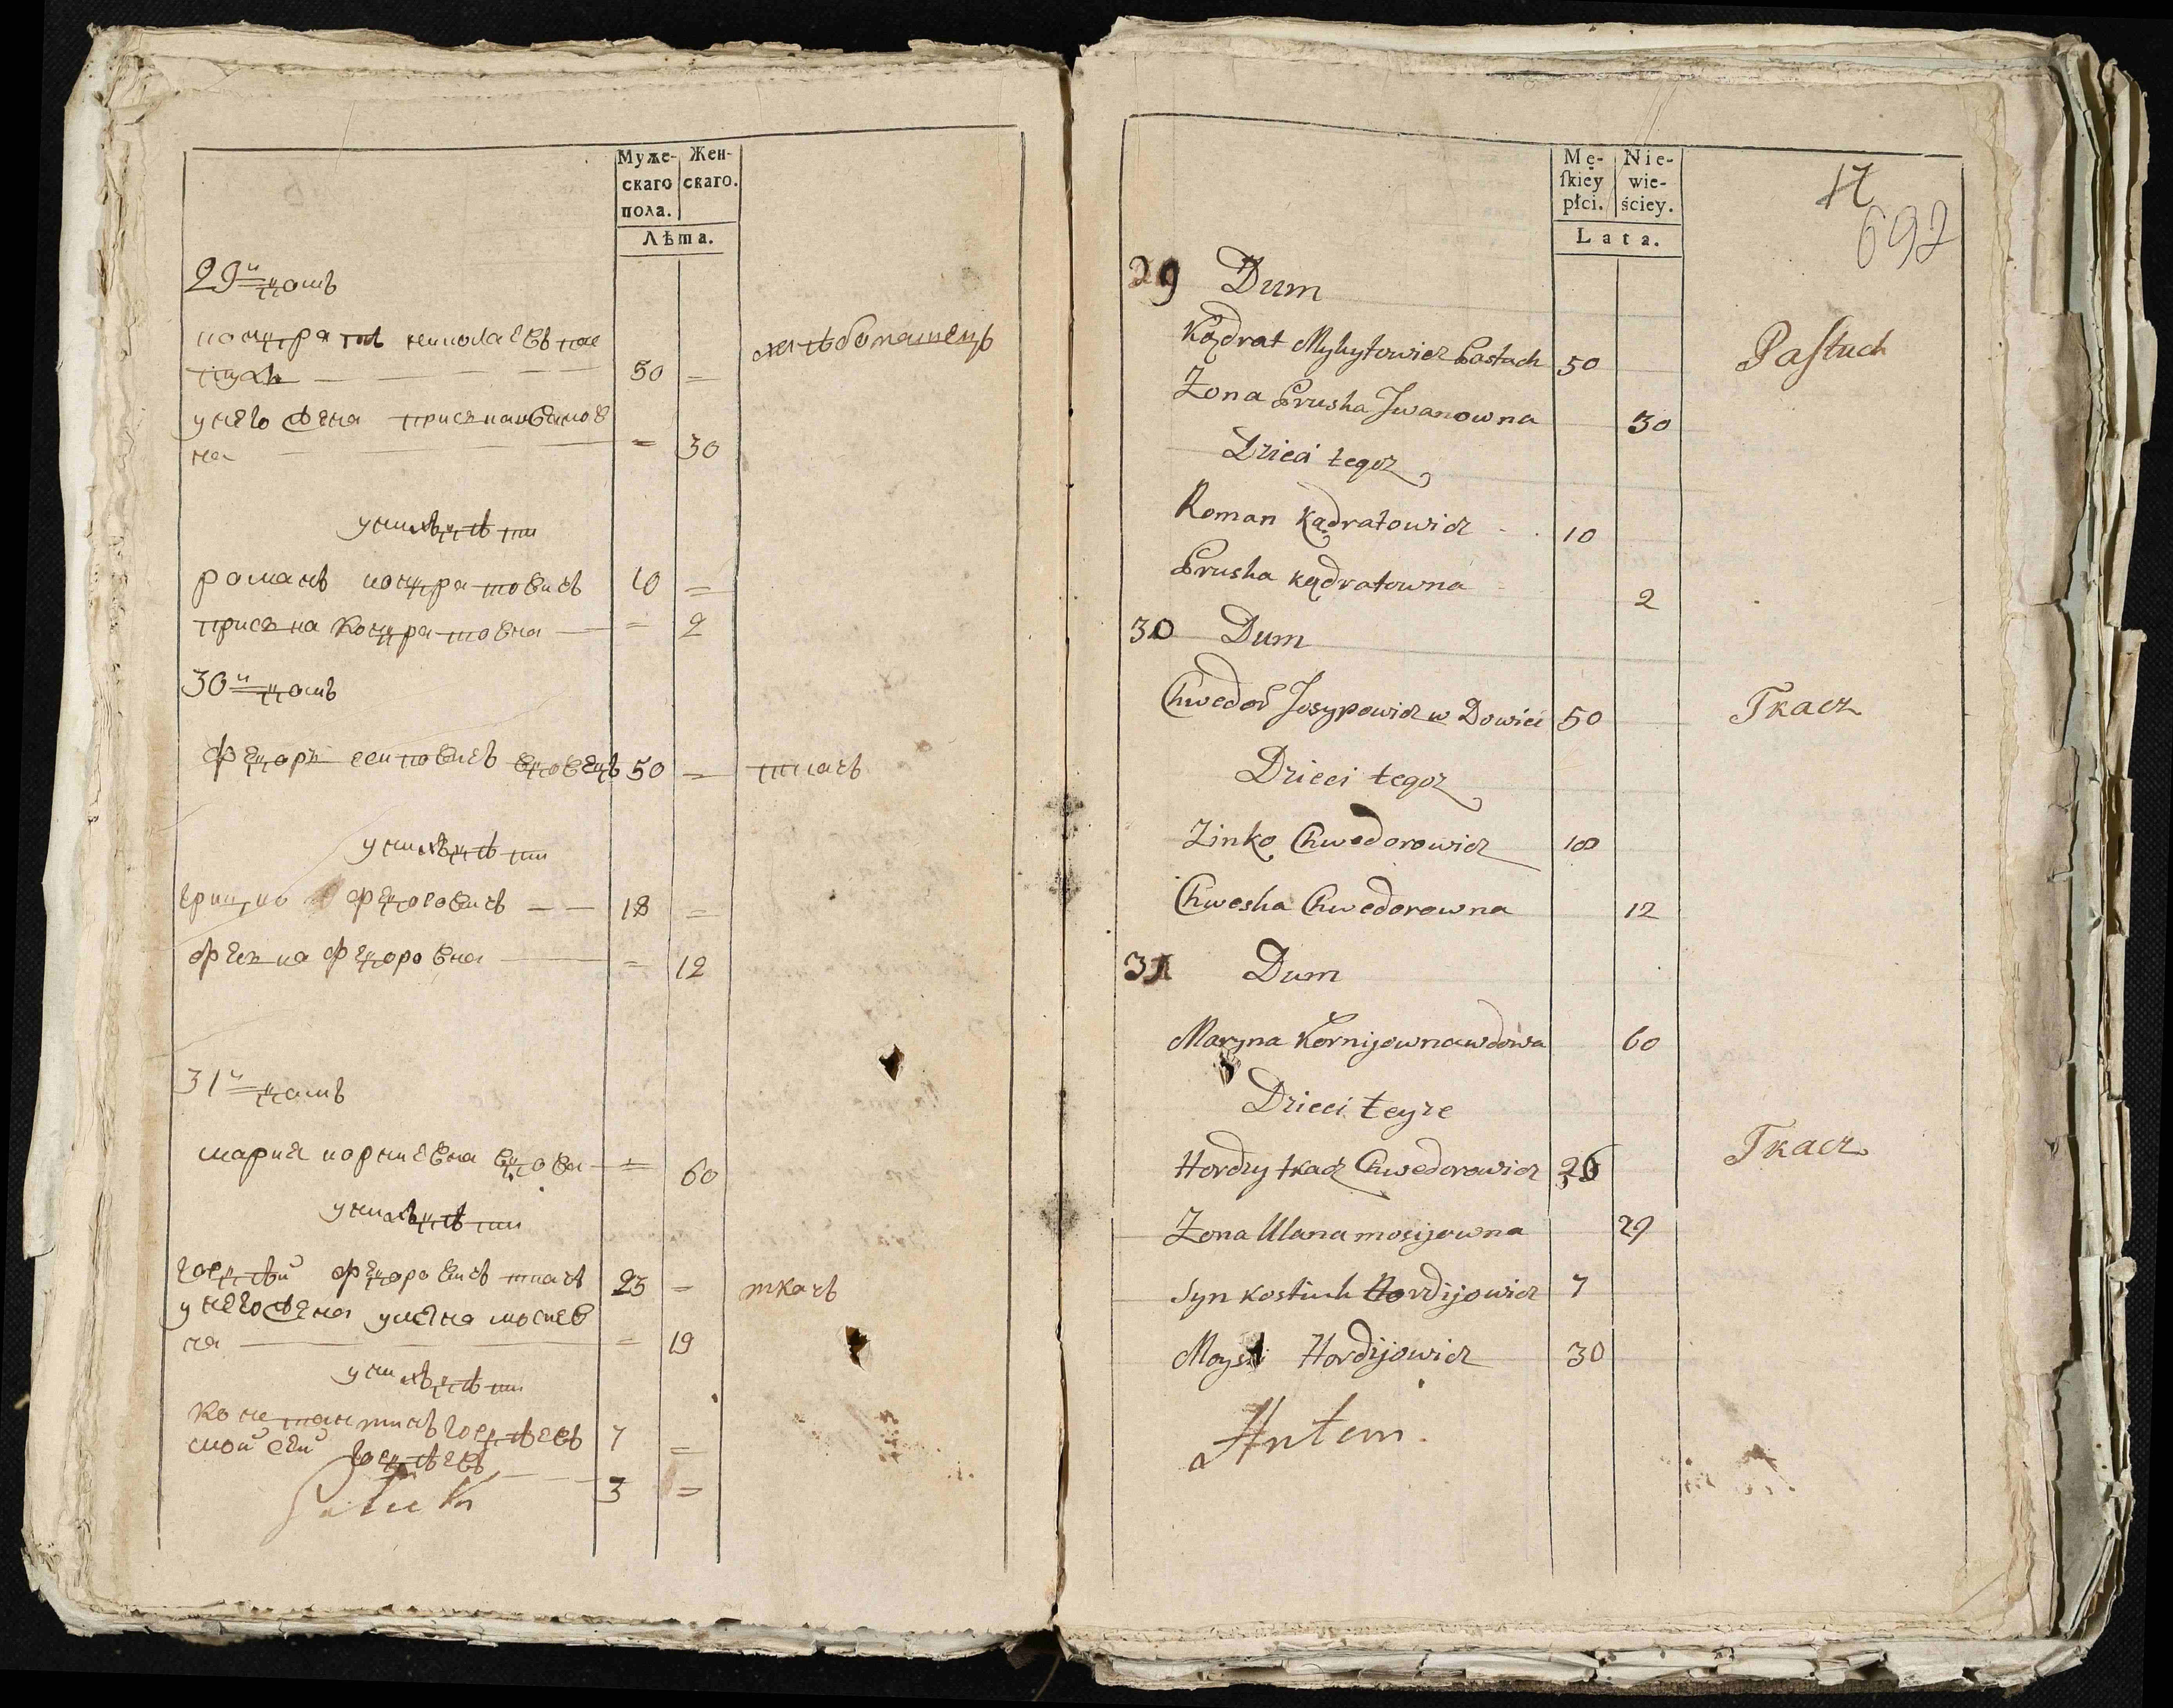 Муже-
скаго
пола.
Жен-
скаго.
Лѣта.
29й домъ
кондратъ николаевъ пас
тухъ 50 =
хлѣбопашецъ
у него жена приська иванов
на = 30
у нихъ дѣти
романъ кондратовичъ 10 =
приська кондратовна = 2
30й домъ
федоръ осиповичъ вдовецъ 50 = ткачъ
у нихъ дѣти
грицко федоровичъ 18 =
феська федоровна = 12
31й домъ
мария корниевна вдова = 60
у нихъ дѣти
гордѣй федоровичъ ткачъ 25 = ткачъ
у него жена улена мосиев
на = 19
у нихъ дѣти
константинъ гордѣевъ 7 =
мойсей гордѣевъ 3 =
Mę-
ſkiey
płci.
Nie-
wie-
ściey.
Lata.
17
692
29 Dum
Kądrat Mykytowicz Pastuch 50 Paſtuch
Zona Prusha Jwanowna 30
Dzieci tegoz
Roman Kądratowicz 10
Prusha kądratowna 2
30 Dum
Chwedor Josypowicz w Dowiec 50 Tkacz
Dzieci tegoz
Zinko Chwedorowicz 18
Chwesha Chwedorowna 12
31 Dum
Maryna Kornijowna wdowa 60
Dzieci teyze
Hordzy tkacz Chwedorowicz 26 Tkacz
Zona Ulana mosijowna 29
Syn kostiuh Hordijowicz 7
Moysei Hordijowicz 30
Antoni.